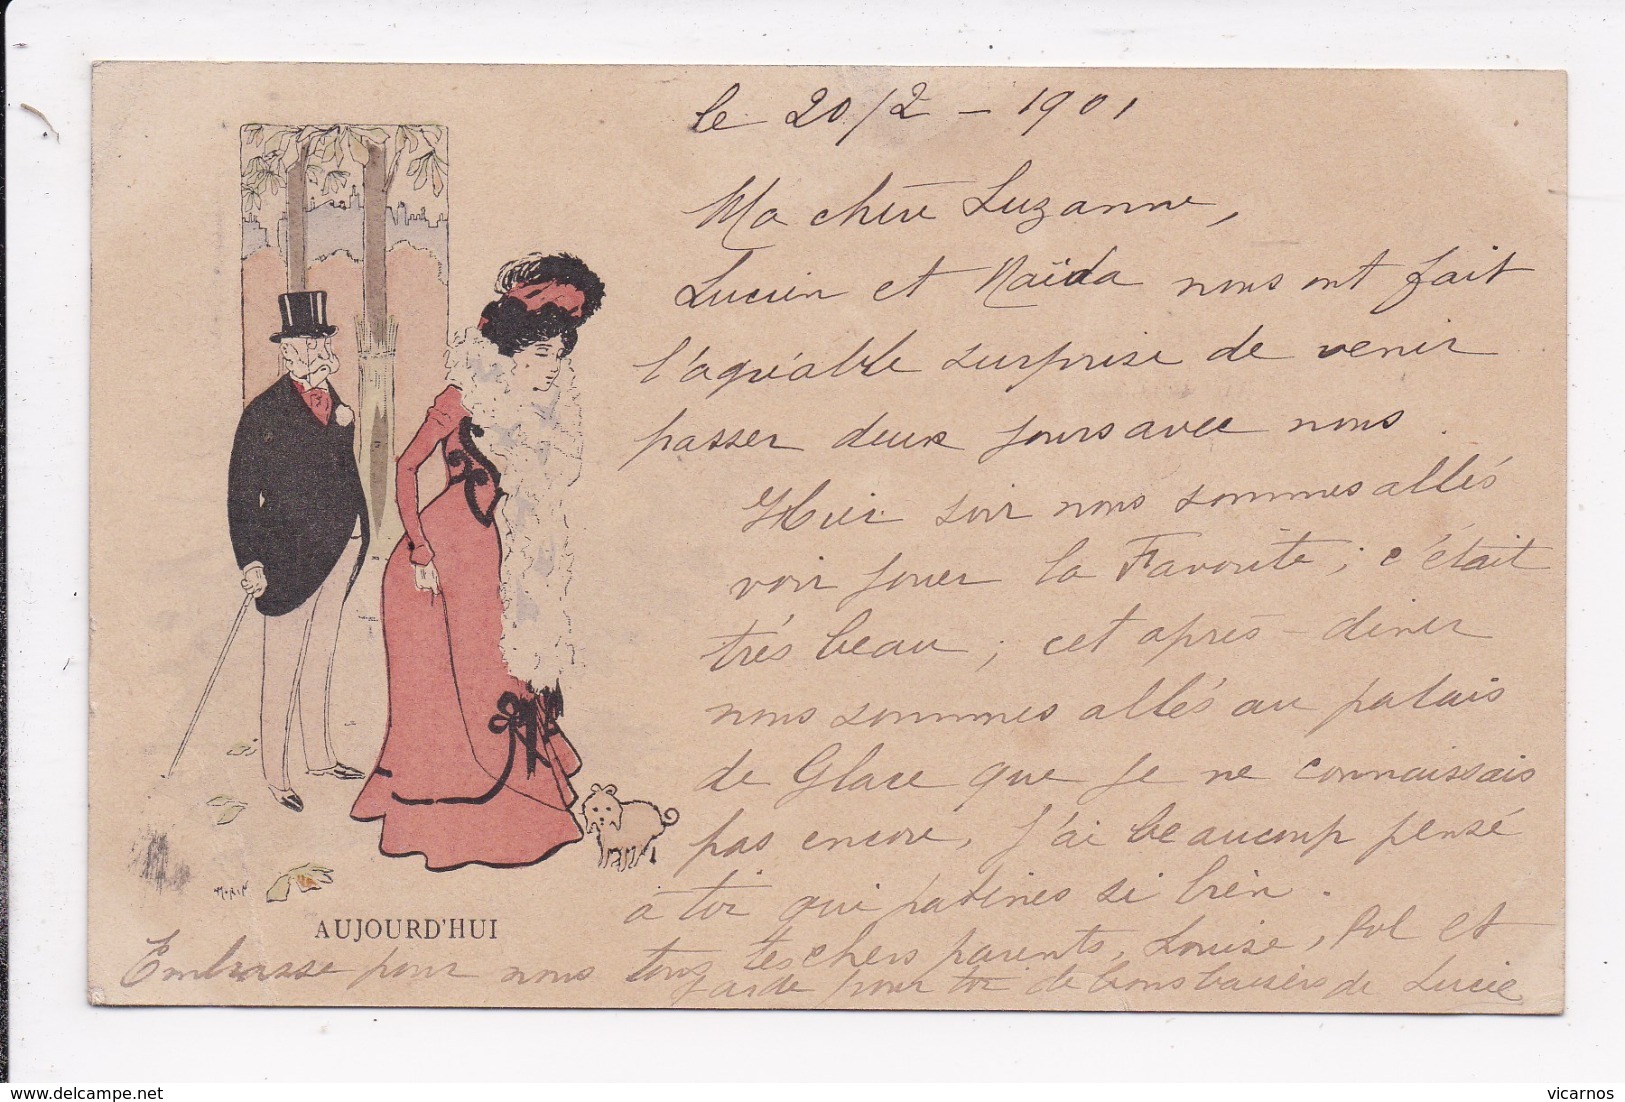 le 20/2 - 1901
Ma chère Suzanne,
Lucien et Naïda nous ont fait
l'agréable surprise de venir
passer deux jours avec nous.
Hier soir nous sommes allés
voir jouer la Favorite ; c'était
très beau ; cet après-diner
nous sommes allés au palais
de Glace que je ne connaissais
pas encore, j'ai beaucoup pensé
à toi qui patines si bien.
Embrasse pour nous tous tes chers parents, Louise, Pol et
garde pour toi de bons baisers de Lucie
MORIN
AUJOURD'HUI
delcampe.net
vicarnos